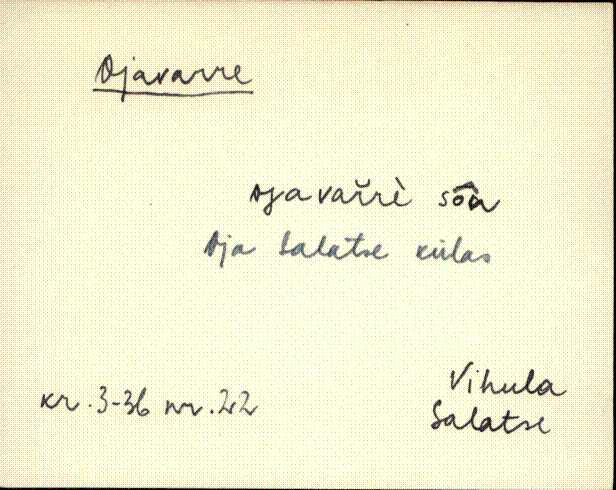 Ojavarre
ojavařrè sôa
Oja Salatse külas
kr. 3-36 nr. 22
Vihula
Salatse